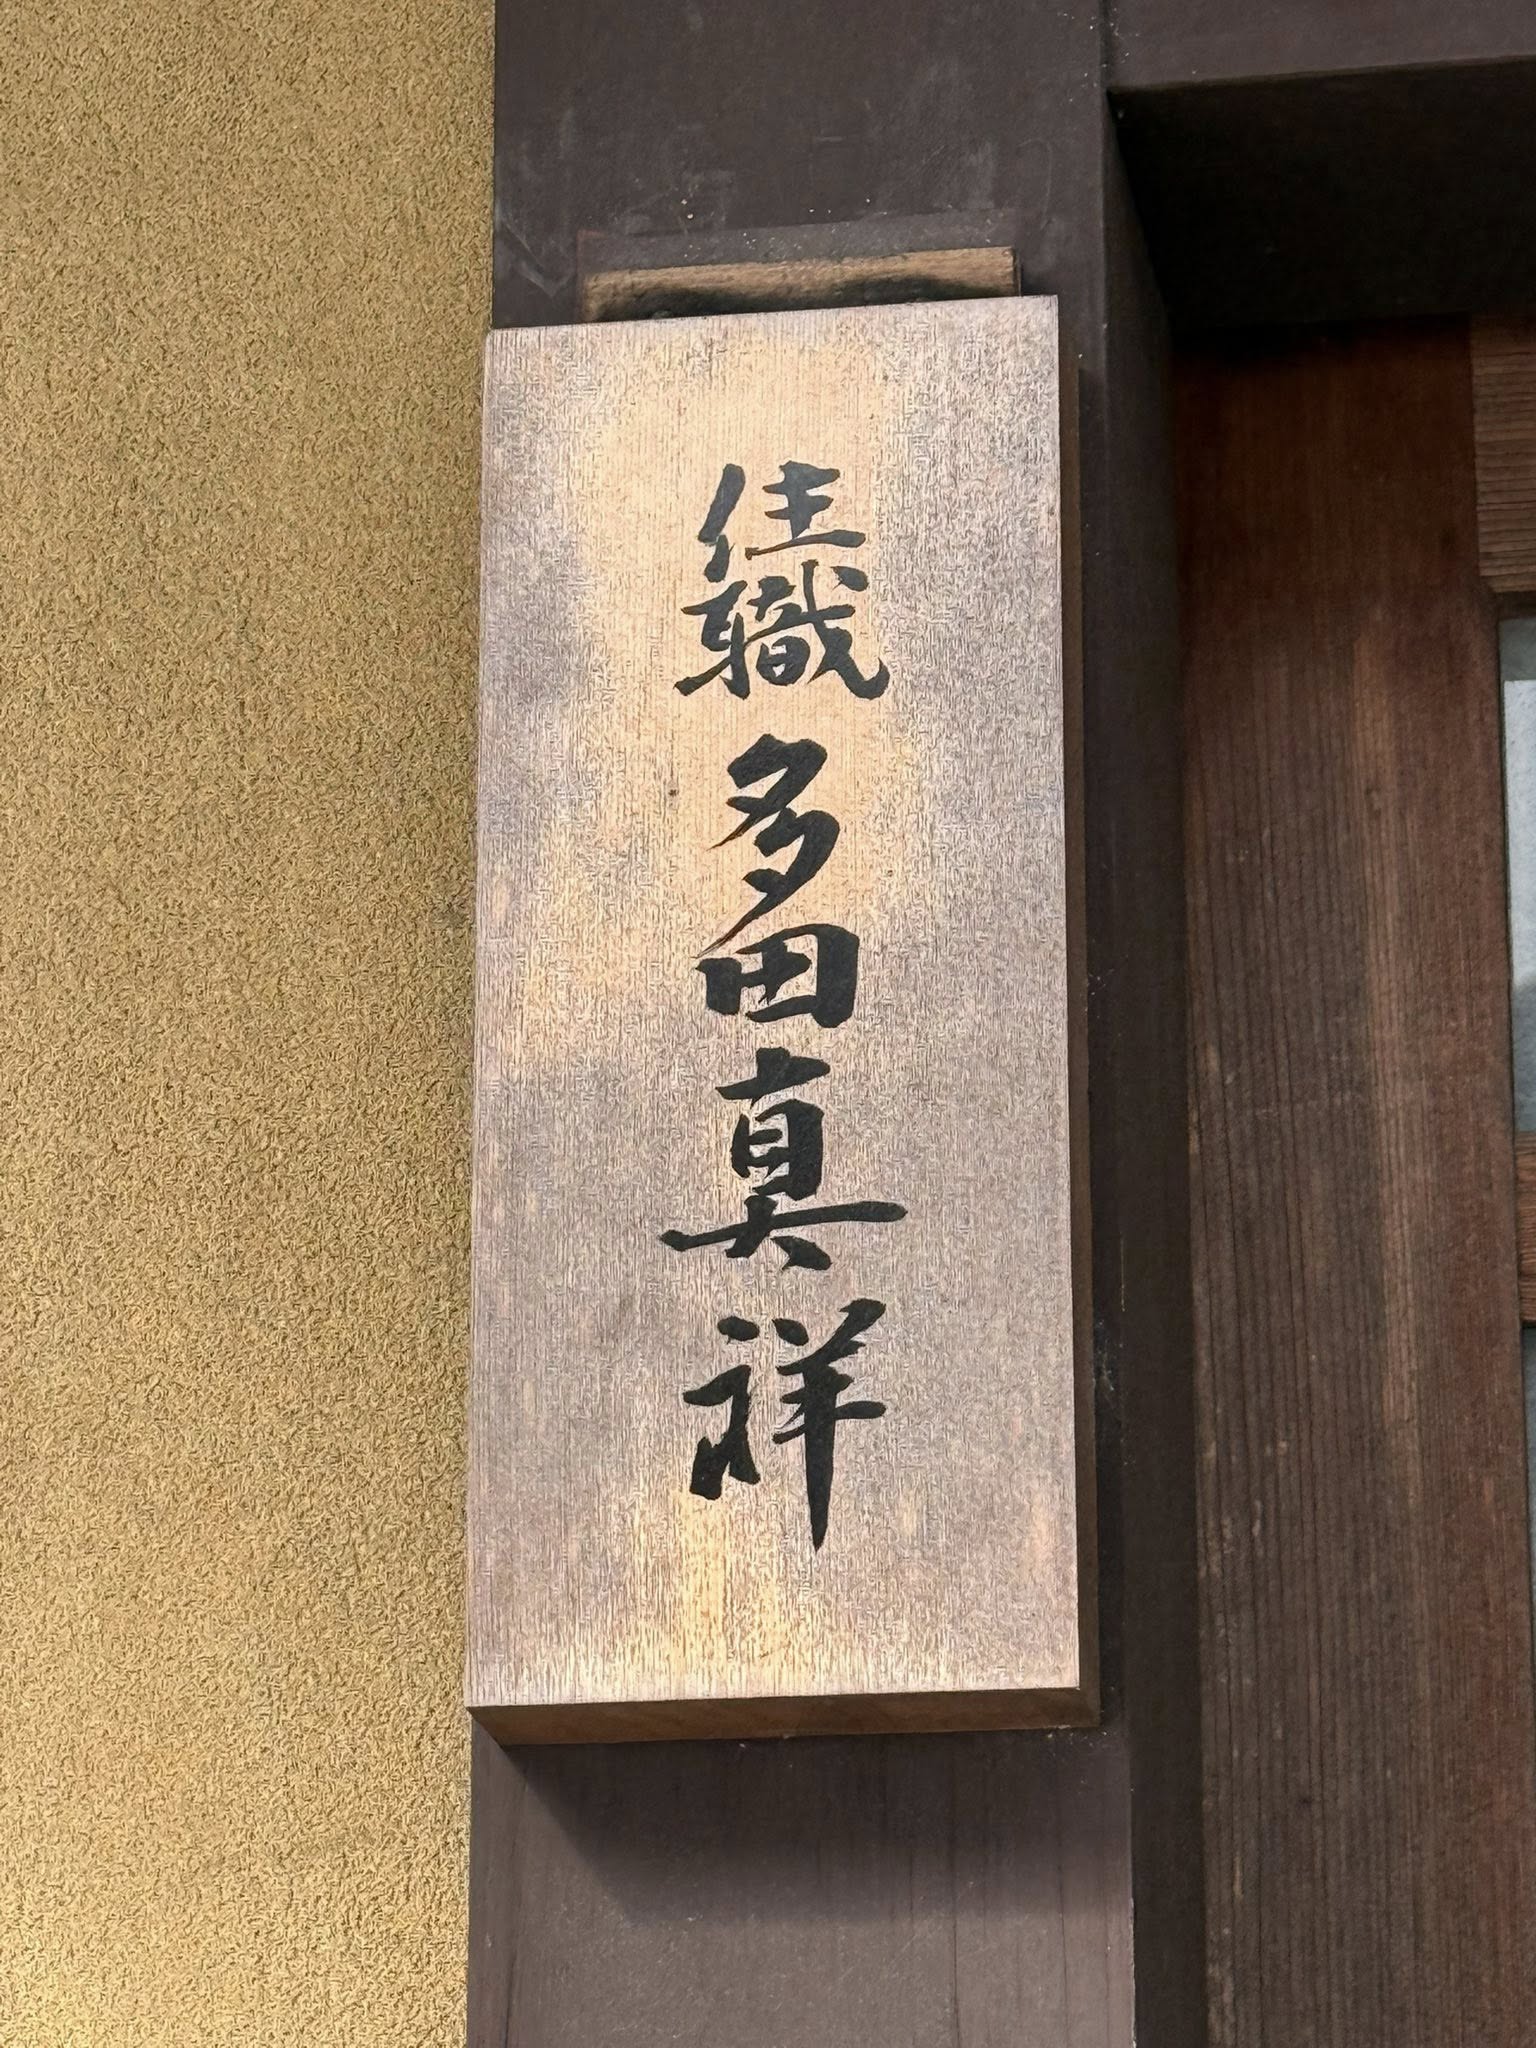 住職 多田真祥